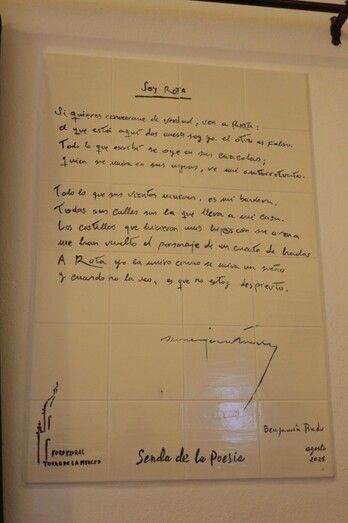 SOY ROTA
Si quieres conocerme de verdad, ven a Rota:
el que está aquí dos meses soy yo. el otro es falso.
Todo lo que escribí se oye en sus caracolas;
quien se mira en sus aguas, ve mi autorretrato.
Todo lo que sus vientos mueven, es mi bandera.
Todas sus calles son la que lleva a mi casa.
Los castillos que hicieron mis hijos con su arena
me han vuelto el personaje de un cuento de hadas
A Rota yo la miro como se mira un sueño
y cuando no la veo, es que no estoy despierto.
Benjamín Prado
agosto
FORO PEDRAL
TORRE DE LA MERCED
Senda de la Poesía